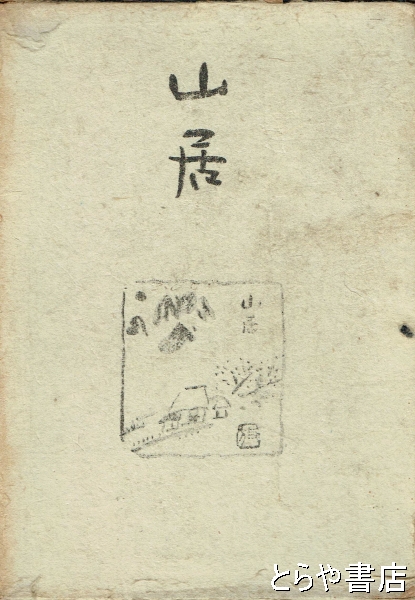 山居
山居
とらや書店